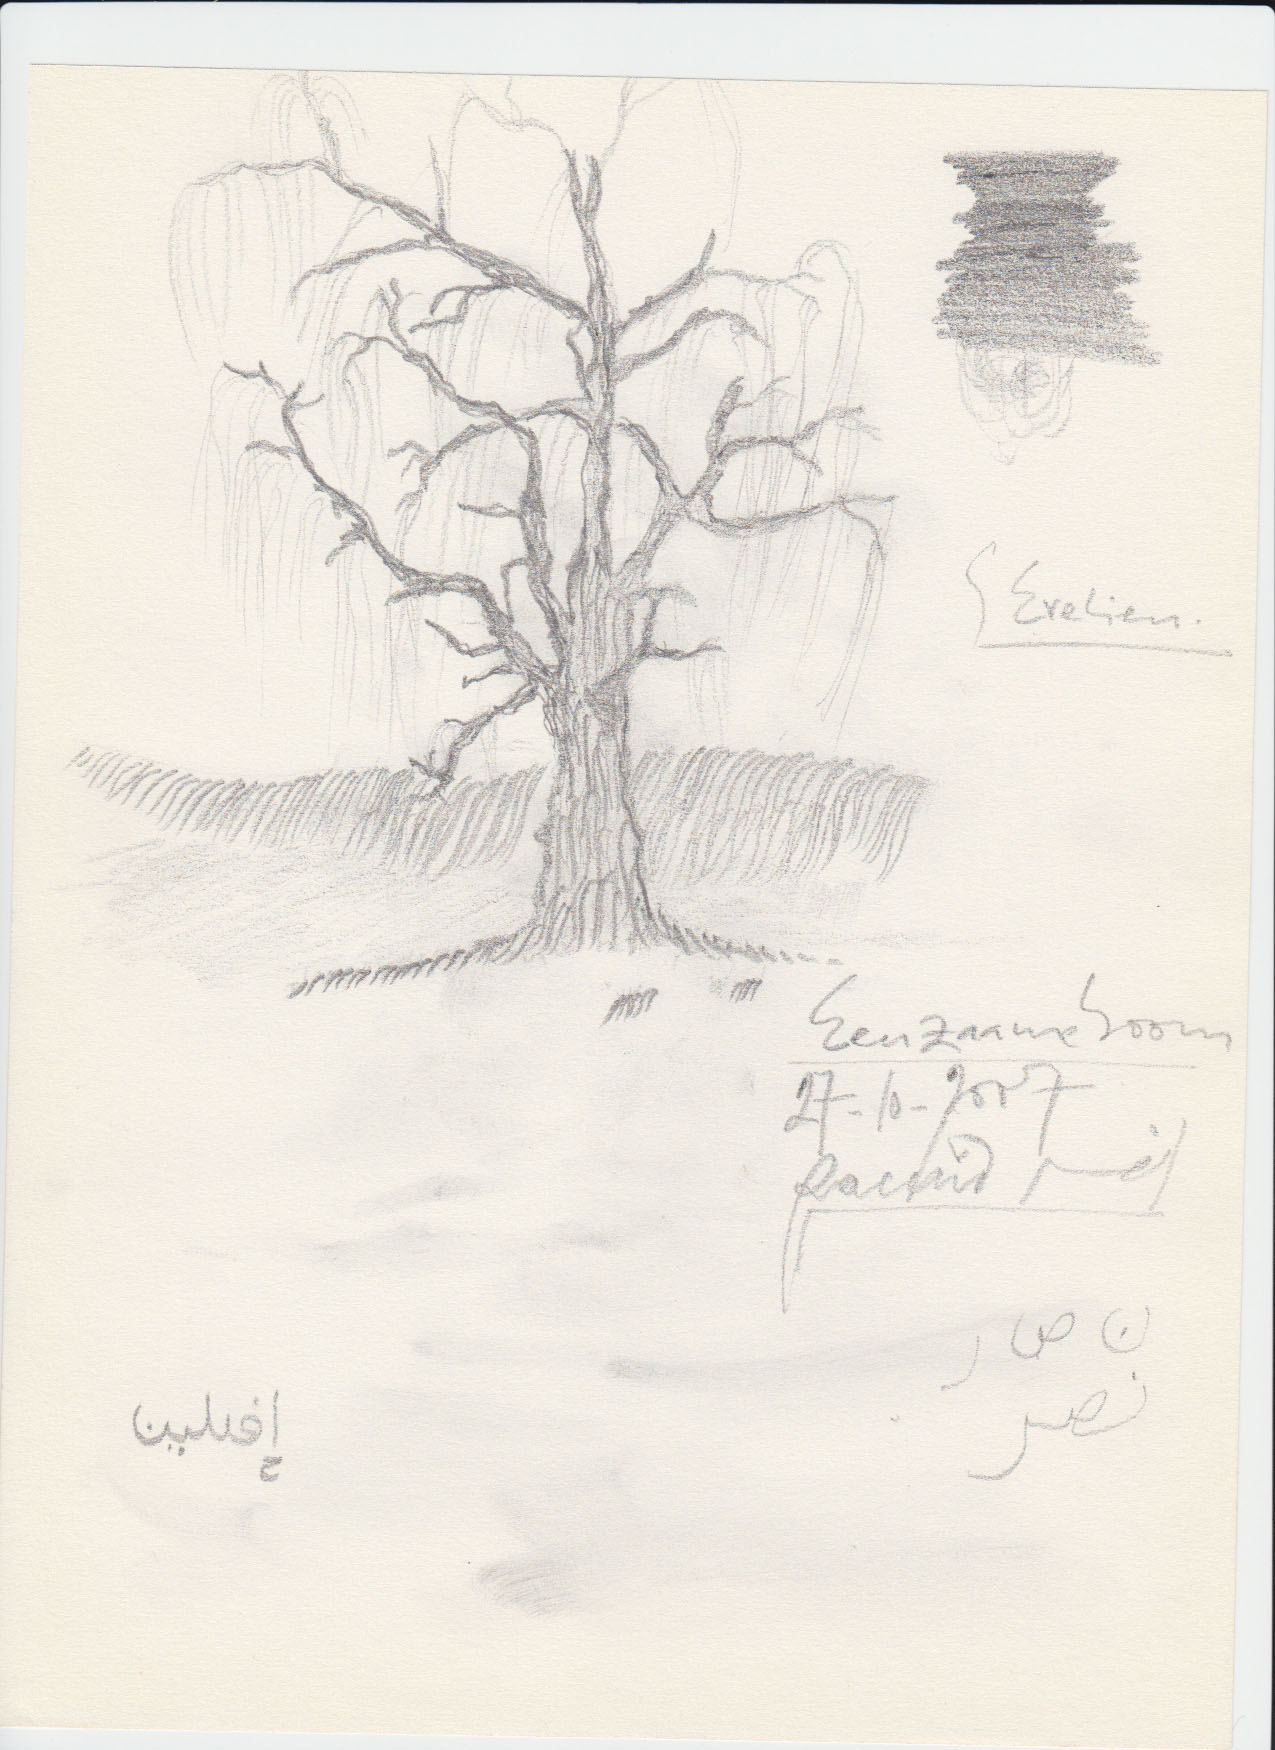 Evelien.
Eenzaame boom
27-10-2007
Rachid
ن ص ر
نصر
إفيلين